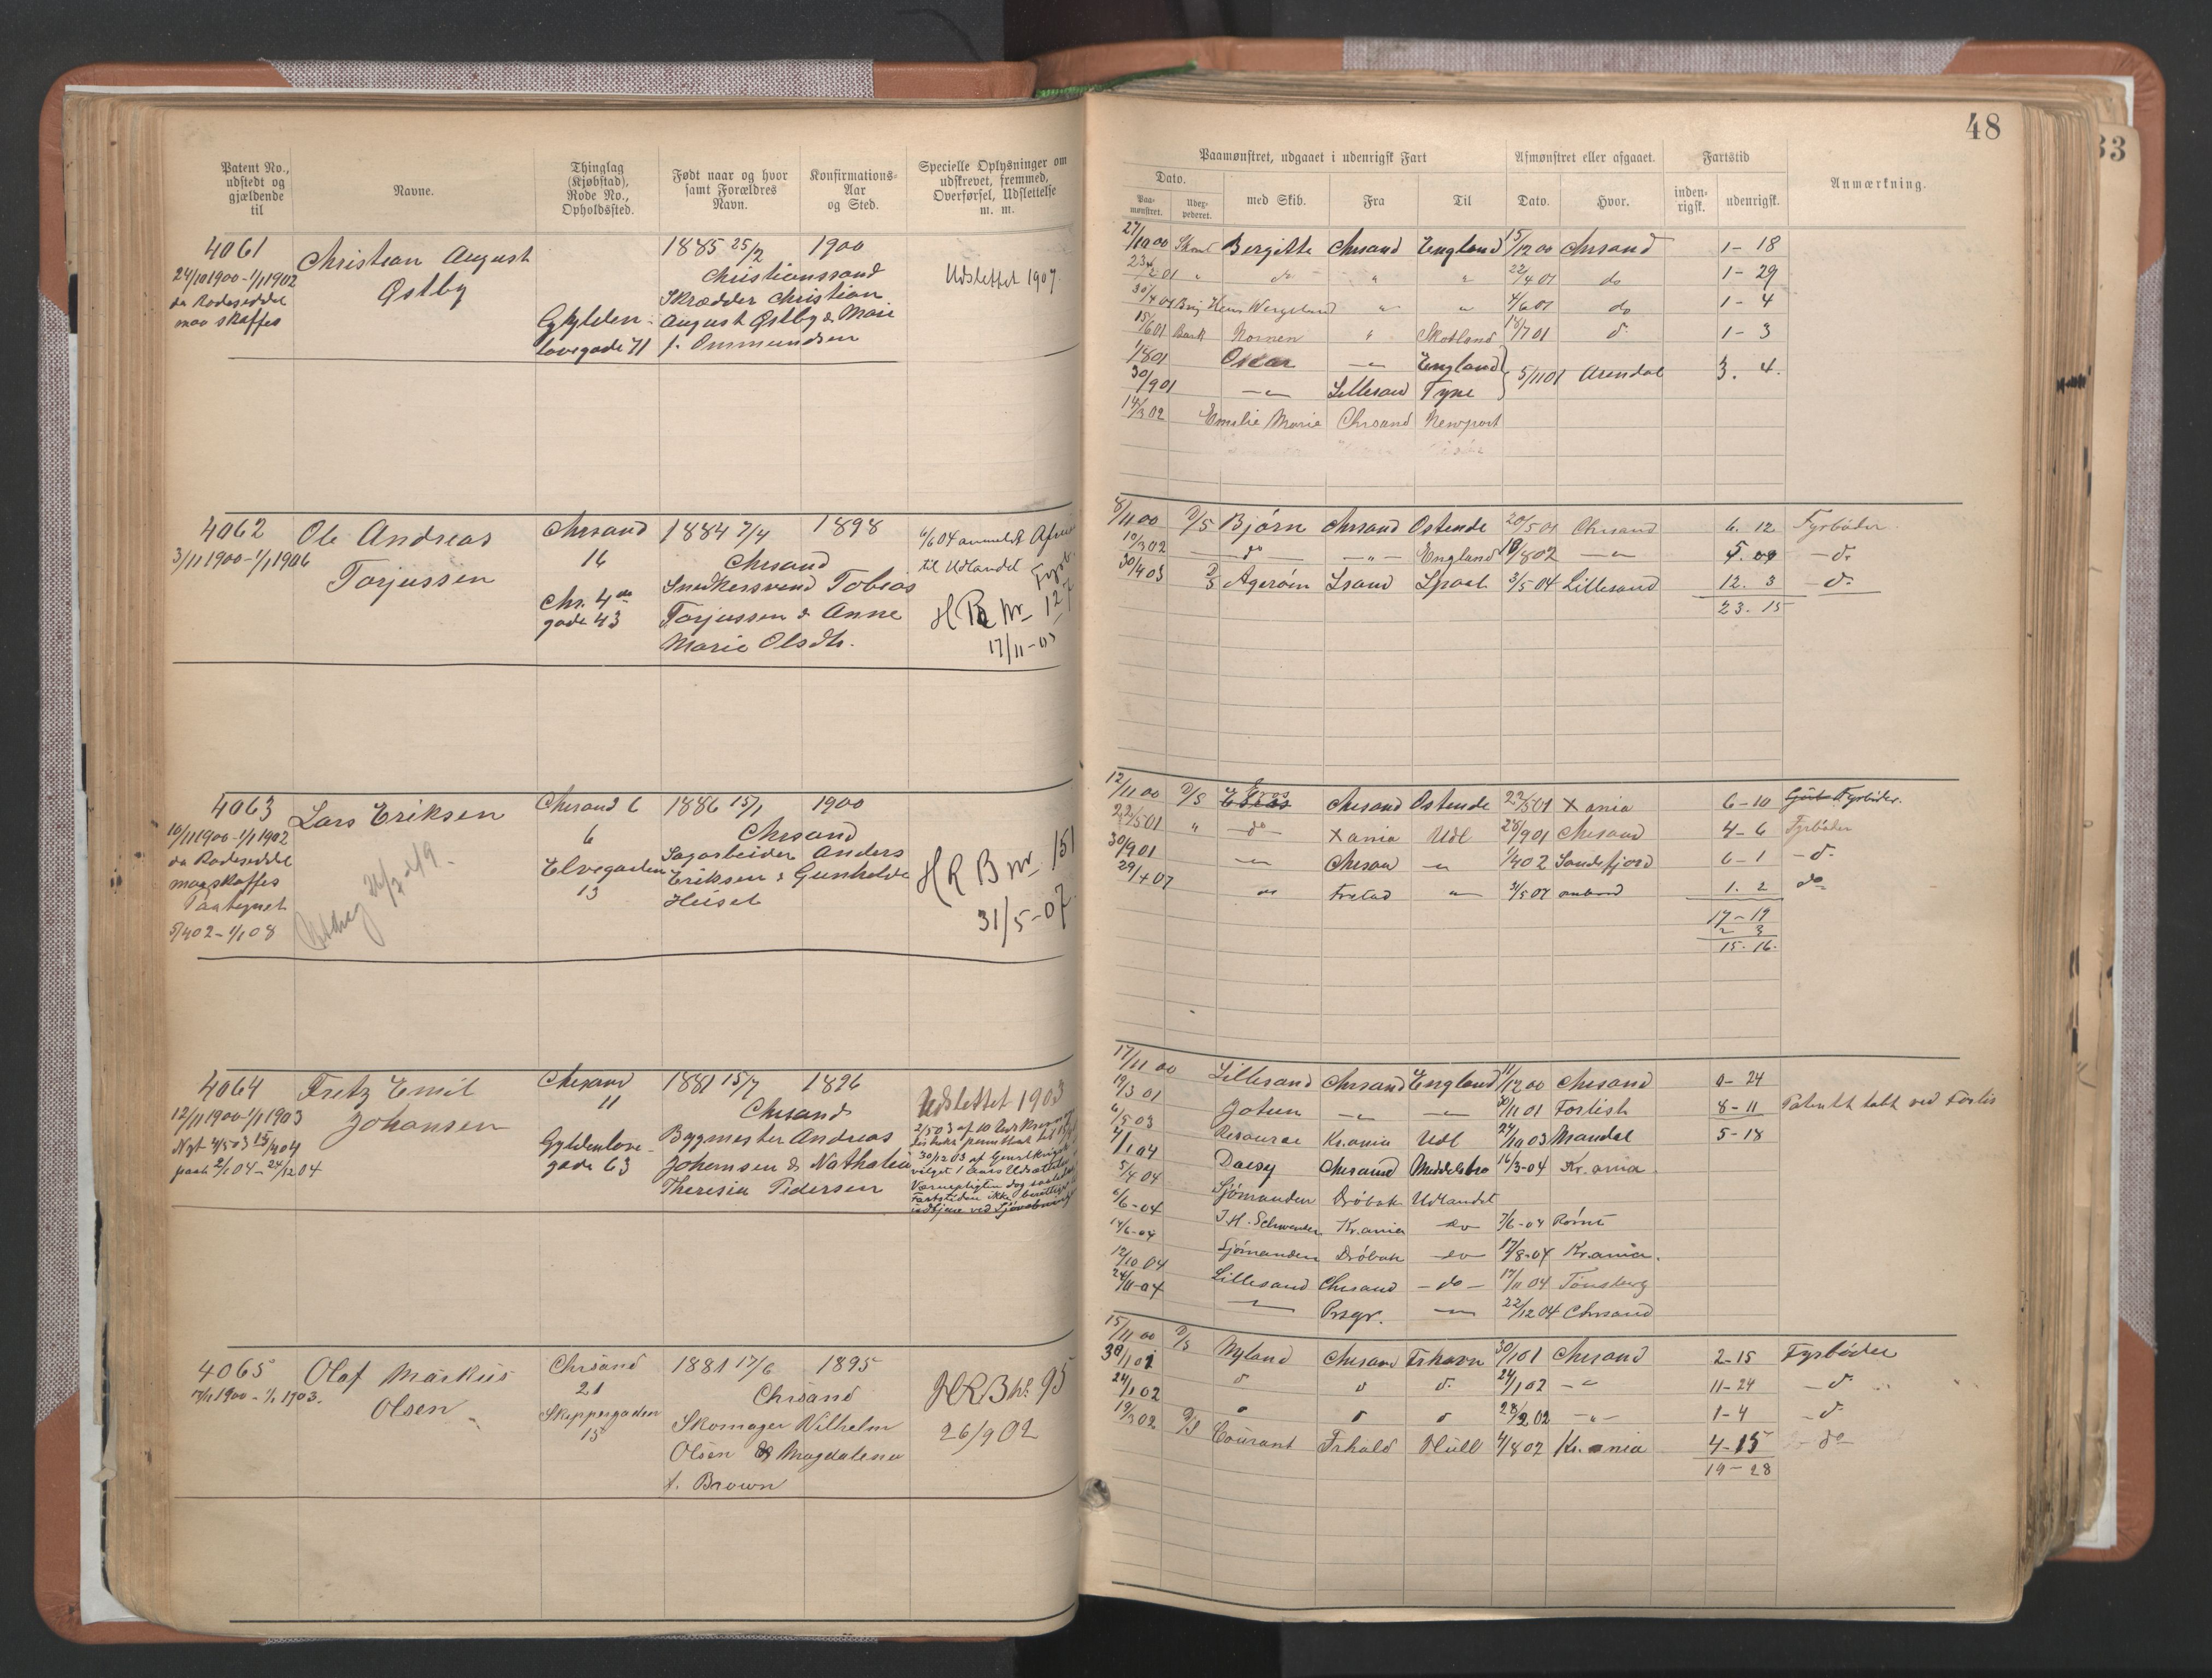 48
33
Patent No., udstedt og gjældende til
Navne.
Thinglag (Kjøbstad), Rode No., Opholdssted.
Født naar og hvor samt Forældres Navn.
Konfirmations-Aar og Sted.
Specielle Oplysninger om udskrevet, fremmed, Overførsel, Udslettelse m. m.
Paamønstret, udgaaet i udenrigsk Fart
Afmønstret eller afgaaet.
Fartstid
Anmærkning.
Dato.
Paa-mønstret.
Udex-pederet.
med Skib.
Fra
Til
Dato.
Hvor.
inden-rigsk.
udenrigsk.
4061
24/10 1900 - 1/1 1902
da Rodeseddel
maa skaffes
Christian August
Østby
Gyldenlovegade 71
1885 25/2 1900
Christianssand
Skrædder Christian
August Østby & Marie
f. Ommundsen
Udslettet 1907.
27/10 00 Bergitte Chrsand England 15/12 00 Chrsand 1 - 18
23/2 01 " do " " 22/4 01 do 1 - 29
30/4 01 Brig Henr Wergeland " " 4/6 01 do 1 - 4
15/6 01 Bark Nornen " Skotland 18/7 01 d. 1 - 3
1/8 01 Oscar -"- England
30/9 01 -"- Lillesand Tyne 5/11 01 Arendal 3. 4.
14/3 02 Emilie Marie Chrsand Newport
4062
3/11 1900 - 1/1 1906
Ole Andreas
Torjussen
Chrsand
16
Chr. 4de
gade 43
1884 7/4 1898
Chrsand
Snedkersvend Tobias
Torjussen & Anne
Marie Olsdtr.
6/6 04 anmeldt
til Udlandet
H R B Nr 127
17/11-03
8/11 00 D/S Bjørn Chrsand Ostende 20/5 01 Chrsand 6. 12 Fyrbøder
10/3 02 do -"- England 18/8 02 -"- 5. 09 - d.
30/4 03 D/S Agerøen Lsand 3/5 04 Lillesand 12. 3 - d.
23. 15
4063
10/11 1900 - 1/1 1902
da Rodeseddel
maa skaffes
Paategnet
5/4 02 - 1/1 08
Lars Eriksen
Chrsand 6
6
Elvegaden
13
1886 15/1 1900
Chrsand
Sagarbeider Anders
Eriksen & Gunhilde
H R B Nr 151
31/5-07
12/11 00 D/S Eros Chrsand Ostende 22/5 01 Xania 6 - 10 Fyrbøder.
22/5 01 " do Xania Udl 28/9 01 Chrsand 4 - 6 Fyrbøder
30/9 01 -"- Chrsan -"- 1/4 02 Sandefjord 6 - 1 - d.
29/4 07 -"- -"- 31/5 07 ombord 1. 2 do
17 - 19
2 3
15 - 16.
4064
12/11 1900 - 1/1 1903
Nyt 4/5 03 15/4 04
paat 2/1 04 - 24/12 04
Fritz Emil
Johansen
Chrsand
11
Gyldenlove-
gade 63
1881 15/7 1896
Chrsand
Bygmester Andreas
Johansen & Nathalia
Theresia Pedersen
Udslettet 1903
17/11 00 Lillesand Chrsand England 11/12 00 Chrsand 0 - 24
19/3 01 Jotun -"- -"- 30/11 01 Forlist 8 - 11 Patentet tabt ved Forlis
6/5 03 Resource Kr.ania Udl 24/10 03 Mandal 5 - 18
4/1 04 Daisy Chrsand Meddelhav 16/3-04 Kr.ania
5/4 04 Sjömanden Dröbak Udlandet
6/6-04 J.H. Schwensen Kr.ania do 7/6-04
14/6-04 Sjömanden Dröbak do 17/8-04 Kr.ania.
12/10 04 Lillesand Chrsand - do - 17/11 04 Tönsberg
24/11-04 -"- Prsgr. -"- 22/12 04 Chrsand
4065
17/11 1900 - 1/1 1903.
Olaf Markus
Olsen
Chrsand
21
Skippergaden
15
1881 17/6 1895
Chrsand
Skomager Vilhelm
Olsen & Magdalena
f. Brown
H R B Nr. 95
26/9 02
15/11 00 D/S Nyland Chrsand Frhavn 30/1 01 Chrsand 2 - 15 Fyrbøder
30/1 01 d d d. 24/1 02 -"- 11 - 24 - d.
24/1 02 d d d 28/2 02 -"- 1 - 4 - d.
19/3 02 D/S Courant Frhald Hull 4/8 02 Kr.ania 4 - 15 - do
19 - 28